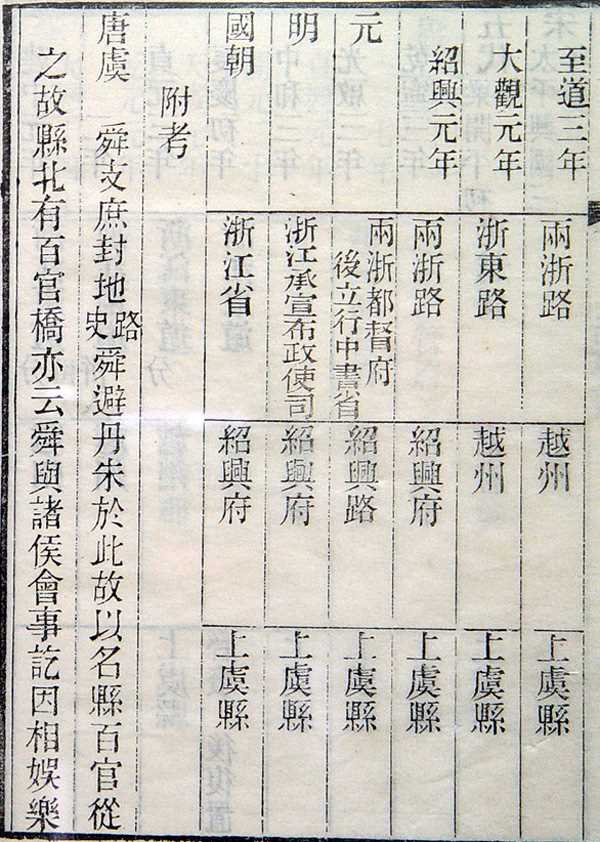 至道三年 兩浙路 越州 上虞縣
大觀元年 浙東路 越州 上虞縣
紹興元年 兩浙路 紹興府 上虞縣
元 兩浙都督府後立行中書省 紹興路 上虞縣
明 浙江承宣布政使司 紹興府 上虞縣
國朝 浙江省 紹興府 上虞縣
附考
唐虞 舜支庶封地路史舜避丹朱於此故以名縣百官從
之故縣北有百官橋亦云舜與諸侯會事訖因相娛樂